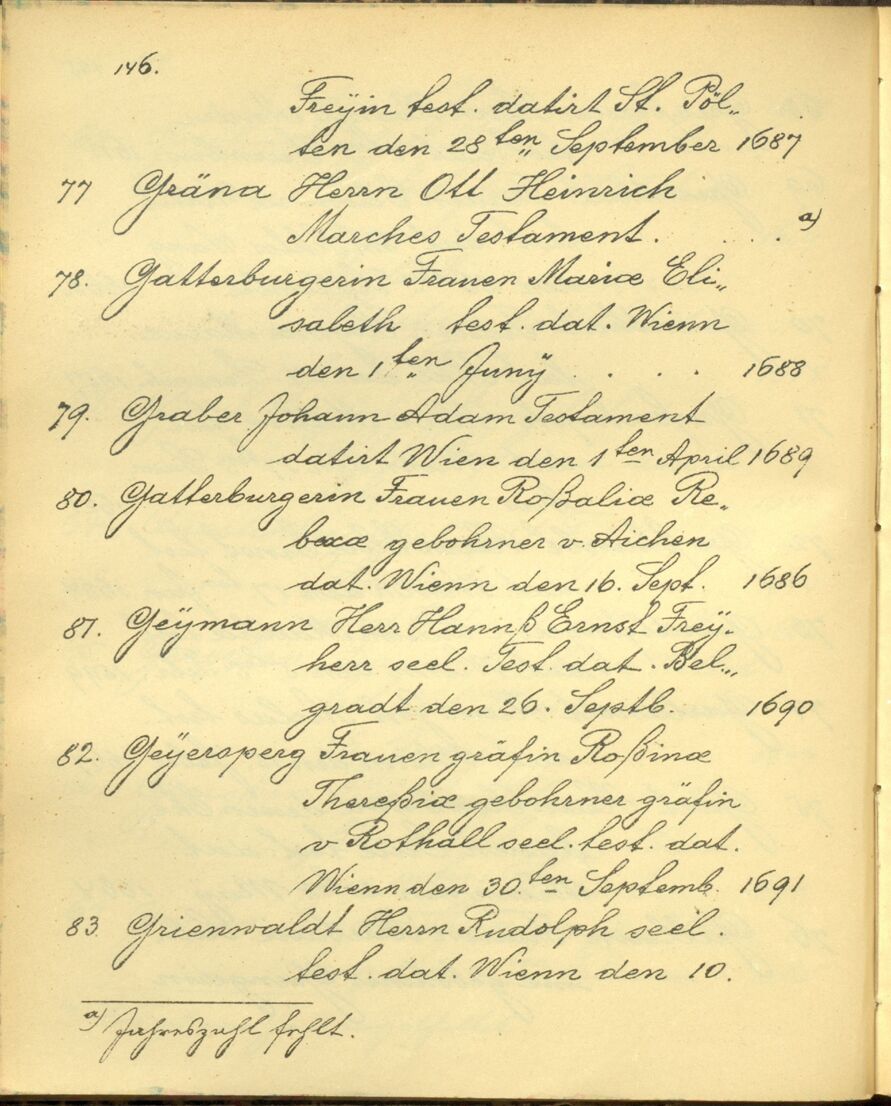 146.
Freÿin test. datirt St. Pöl„
ten den 28ten September 1687
77 Gräna Herrn Ott Heinrich
Marches Testament. . . . a)
78. Gatterburgerin Frauen Mariæ Eli„
sabeth test. dat. Wienn
den 1ten Junÿ . . . . 1688
79. Graber Johann Adam Testament
datirt Wien den 1ten April 1689
80. Gatterburgerin Frauen Roßaliæ Re„
becæ gebohrner v. Aichen
dat. Wienn den 16. Sept. 1686
81. Geÿmann Herr Hannß Ernst Freÿ„
herr seel. Test. dat. Bel„
gradt den 26. Septb. 1690
82. Geÿersperg Frauen gräfin Roßinæ
Thereßiæ gebohrner gräfin
v Rothall seel. test. dat.
Wienn den 30.ten Septemb. 1691
83. Grienwaldt Herrn Rudolph seel.
test. dat. Wienn den 10.
a) Jahreszahl fehlt.